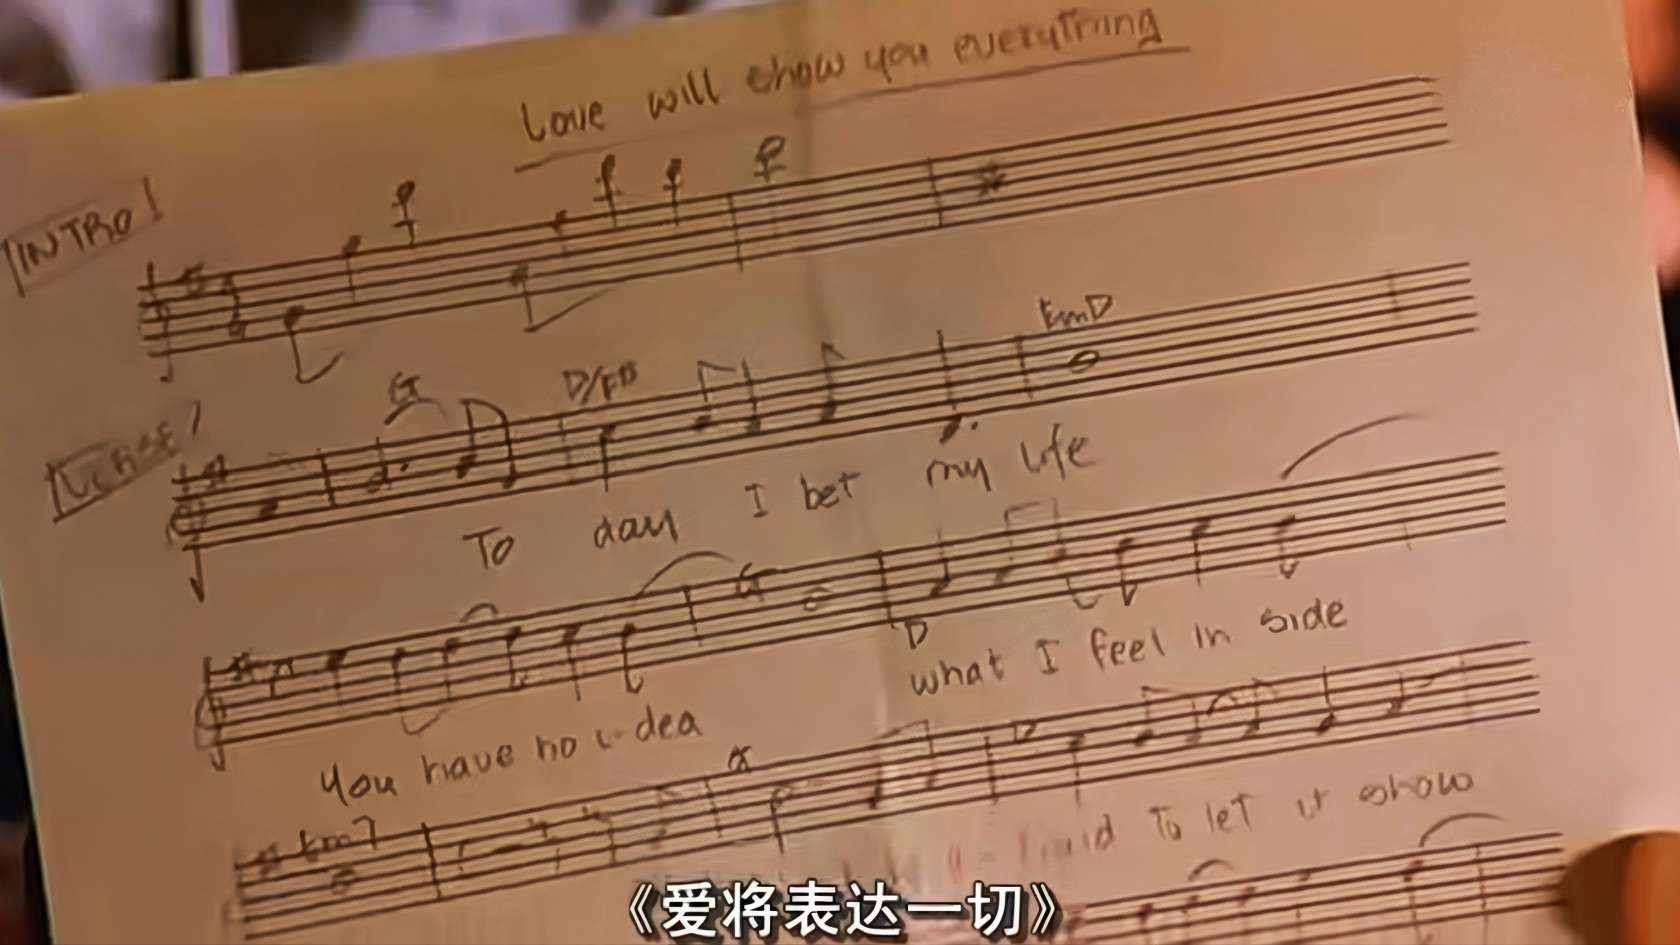 Love will show you everything
INTRO
VERSE
G D/F# Em D
To day I bet my life
G
D
You have no i-dea what I feel in side
Em7 G D
to let it show
《爱将表达一切》